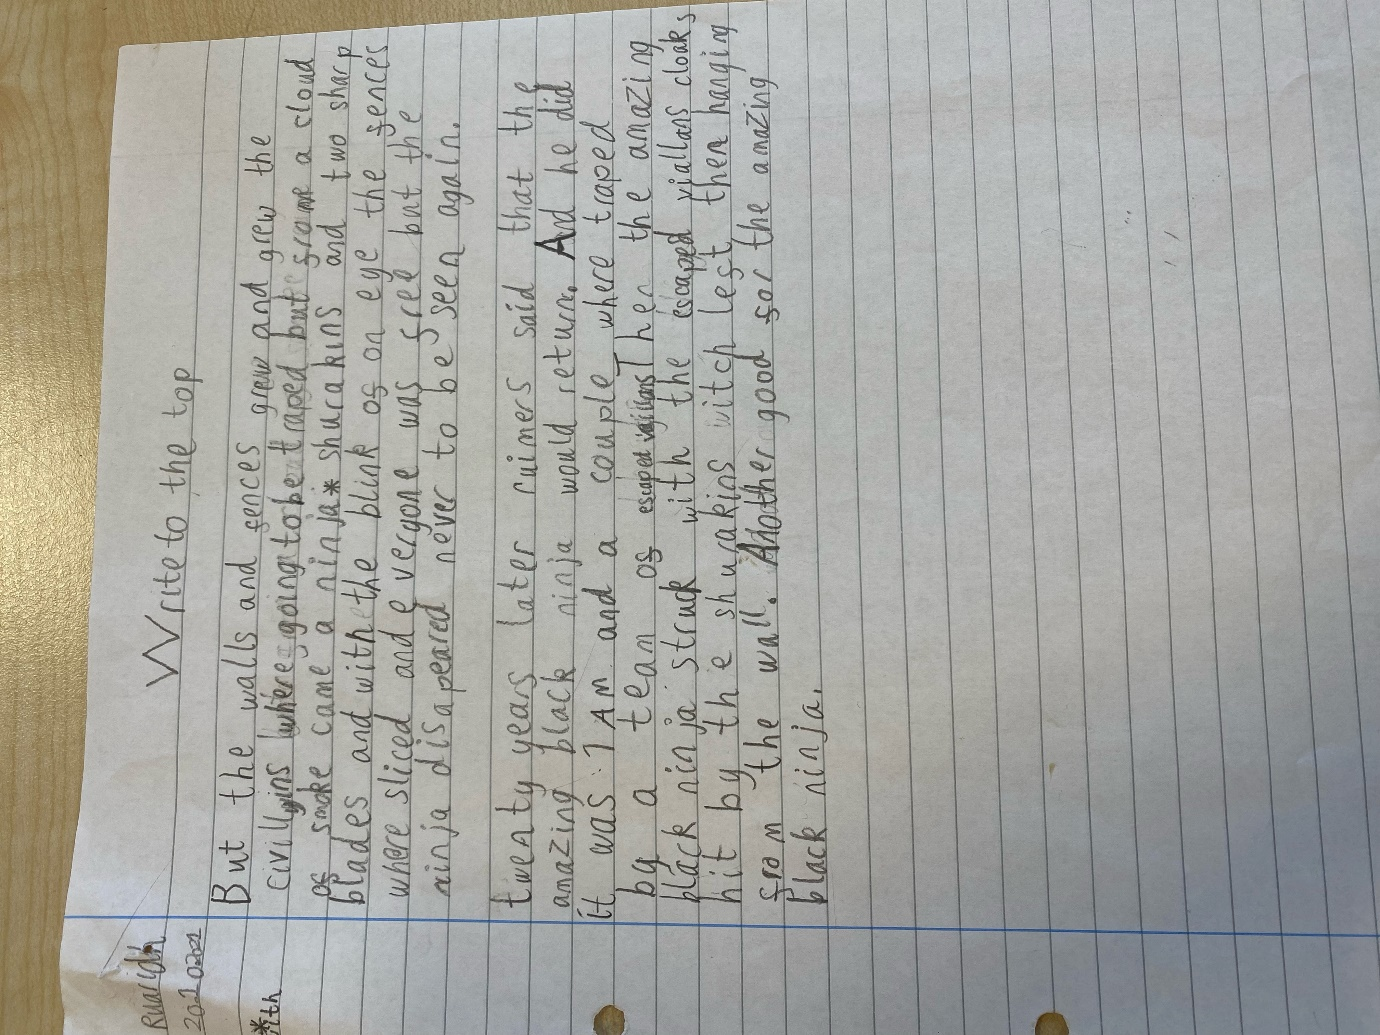 Ruaridh
Write to the top
*ith
But the walls and fences grew and grew the
civillyins where going to be traped but frome a cloud
of smoke came a ninja* shurakins and two sharp
blades and with the blink of on eye the fences
where sliced and e veryone was free but the
ninja disapeared never to be seen again.
twenty years later ruimers said that the
amazing black ninja would return. And he did
it was 1 AM and a couple where traped
by a team of escaped viallans Then the amazing
black ninja struck with the escaped viallans cloaks
hit by the shurakins witch left then hanging
from the wall. Another good for the amazing
black ninja.